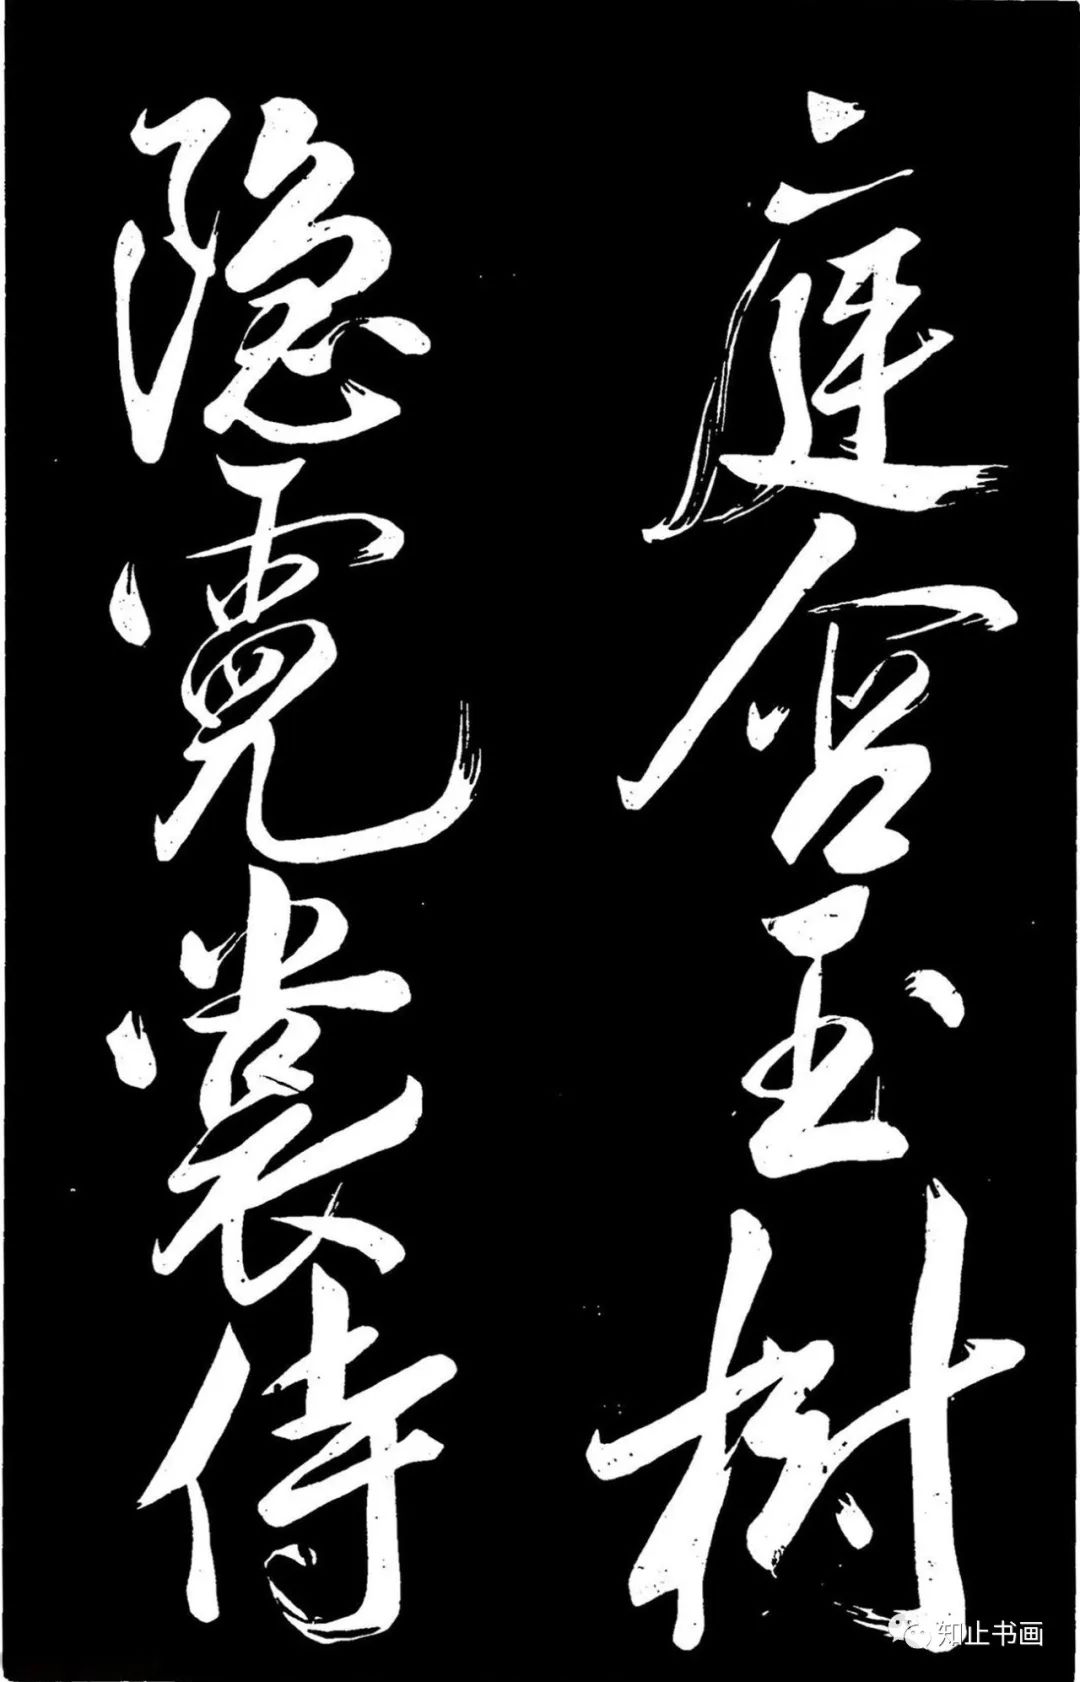 庭含玉樹
隱霓裳侍
知止书画